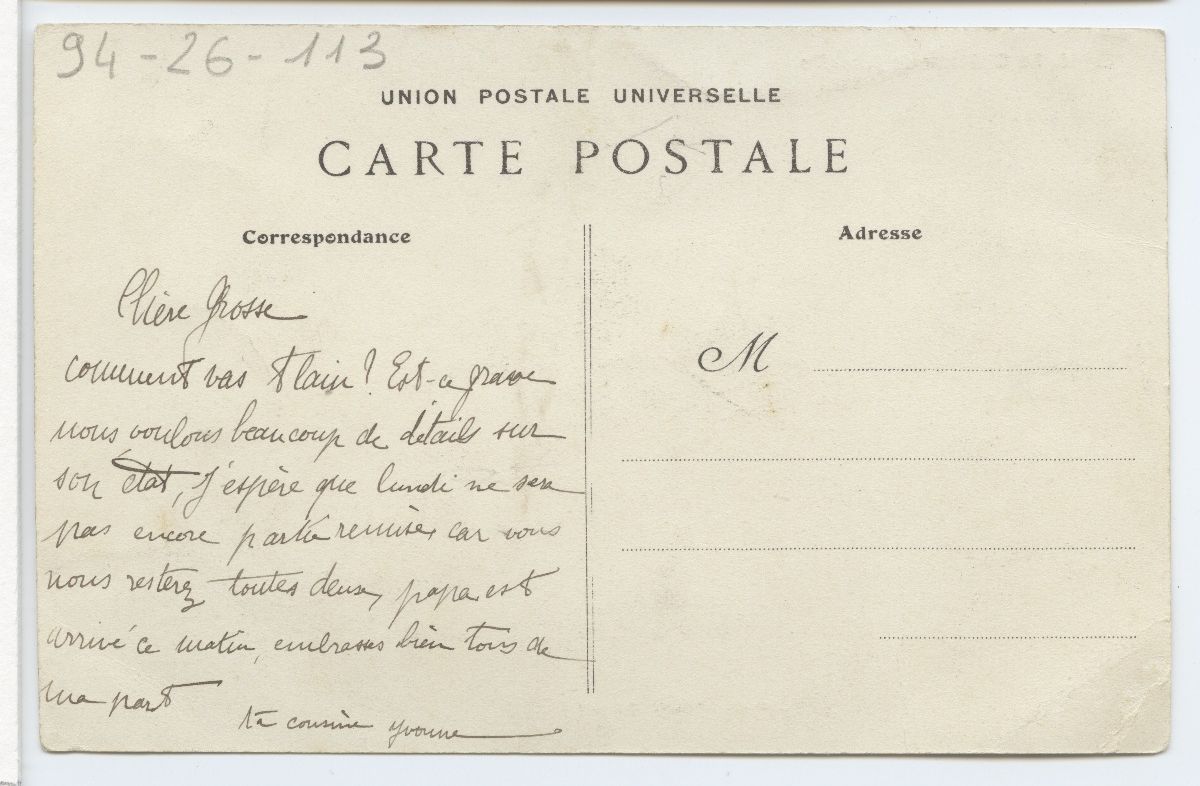 94-26-113
UNION POSTALE UNIVERSELLE
CARTE POSTALE
Correspondance
Chère Grosse
comment vas Alain? Est-ce grave
nous voulons beaucoup de détails sur
son état, j'espère que lundi ne sera
pas encore partie remise, car vous
nous resterez toutes deux, papa est
arrivé ce matin, embrasses bien tous de
ma part
ta cousine Yvonne
Adresse
M